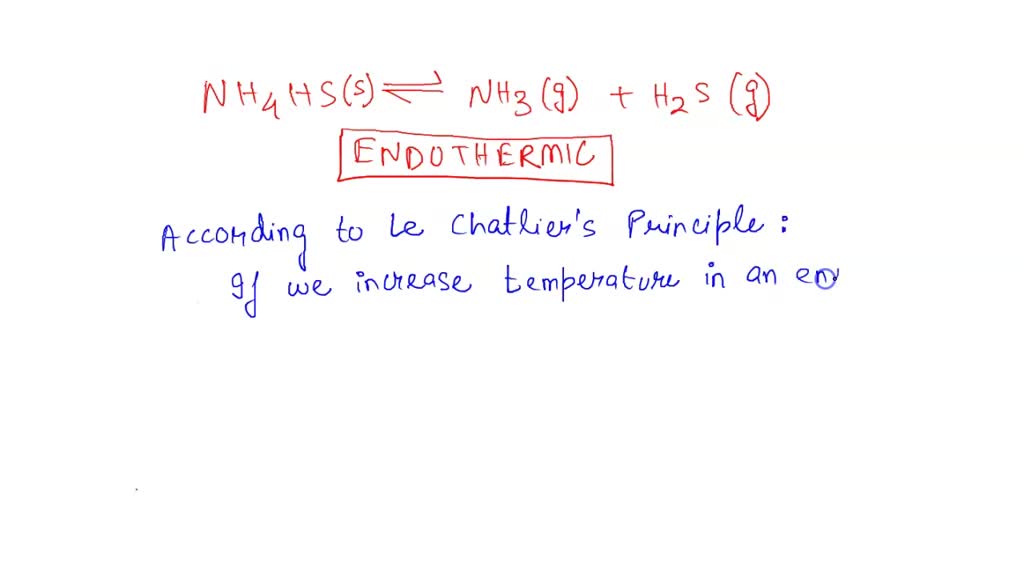 NH4HS(s) ⇌ NH3(g) + H2S(g)
ENDOTHERMIC
According to Le Chatlier's Principle :
If we increase temperature in an en